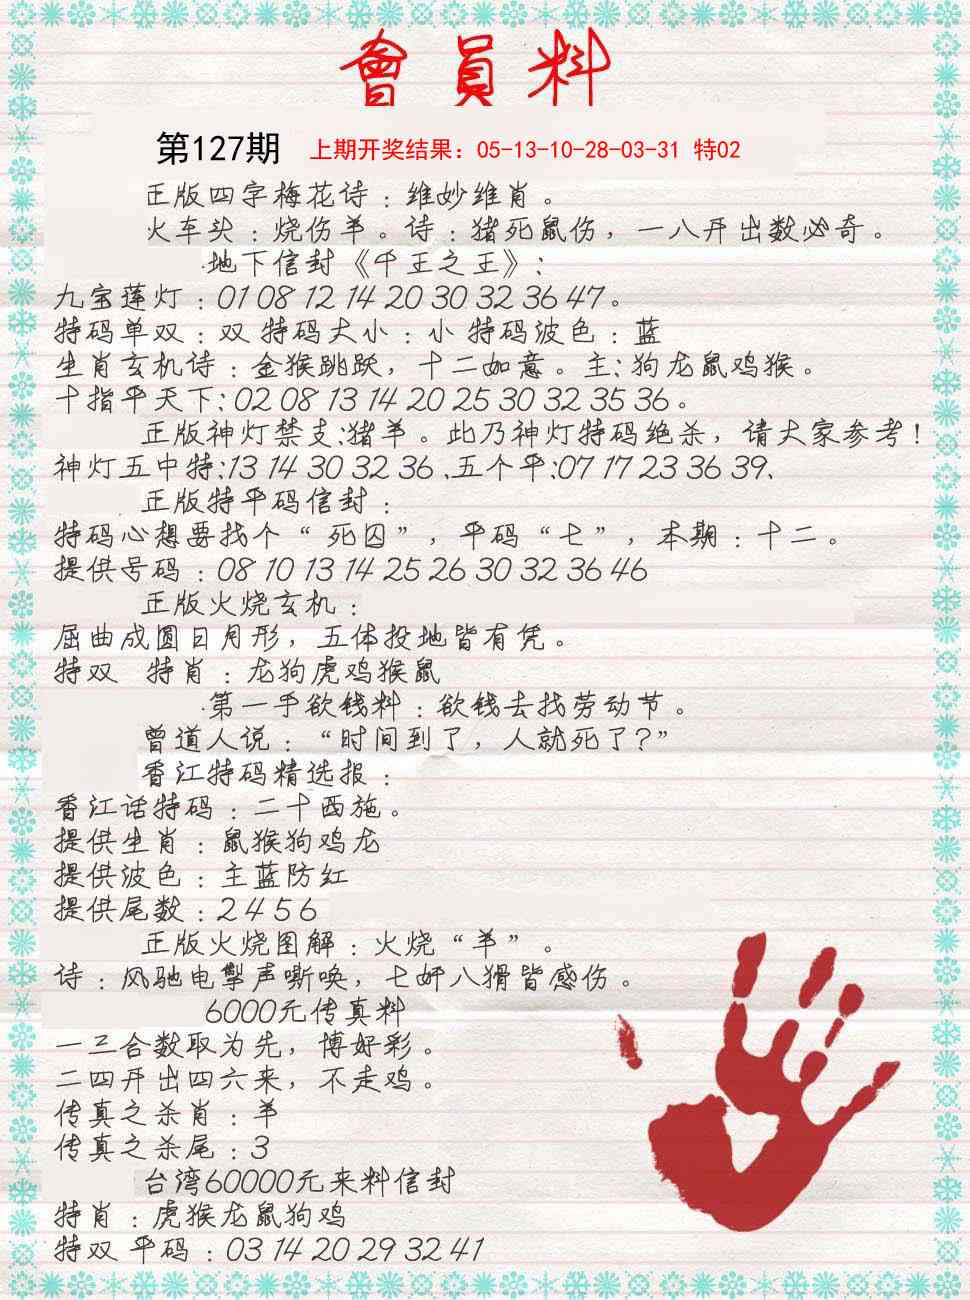 會員料
第127期 上期开奖结果：05-13-10-28-03-31 特02
正版四字梅花诗：维妙维肖。
火车头：烧伤羊。诗：猪死鼠伤，一八开出数必奇。
地下信封《千王之王》：
九宝莲灯：01 08 12 14 20 30 32 36 47。
特码单双：双 特码大小：小 特码波色：蓝
生肖玄机诗：金猴跳跃，十二如意。主：狗龙鼠鸡猴。
十指平天下：02 08 13 14 20 25 30 32 35 36。
正版神灯禁支：猪羊。此乃神灯特码绝杀，请大家参考！
神灯五中特：13 14 30 32 36、五个平：07 17 23 36 39、
正版特平码信封：
特码心想要找个“死囚”，平码“七”，本期：十二。
提供号码：08 10 13 14 25 26 30 32 36 46
正版火烧玄机：
屈曲成圆日月形，五体投地皆有凭。
特双 特肖：龙狗虎鸡猴鼠
第一手欲钱料：欲钱去找劳动节。
曾道人说：“时间到了，人就死了？”
香江特码精选报：
香江话特码：二十西施。
提供生肖：鼠猴狗鸡龙
提供波色：主蓝防红
提供尾数：2 4 5 6
正版火烧图解：火烧“羊”。
诗：风驰电掣声嘶唤，七奸八猾皆感伤。
6000元传真料
一三合数取为先，博好彩。
二四开出四六来，不走鸡。
传真之杀肖：羊
传真之杀尾：3
台湾60000元来料信封
特肖：虎猴龙鼠狗鸡
特双 平码：03 14 20 29 32 41